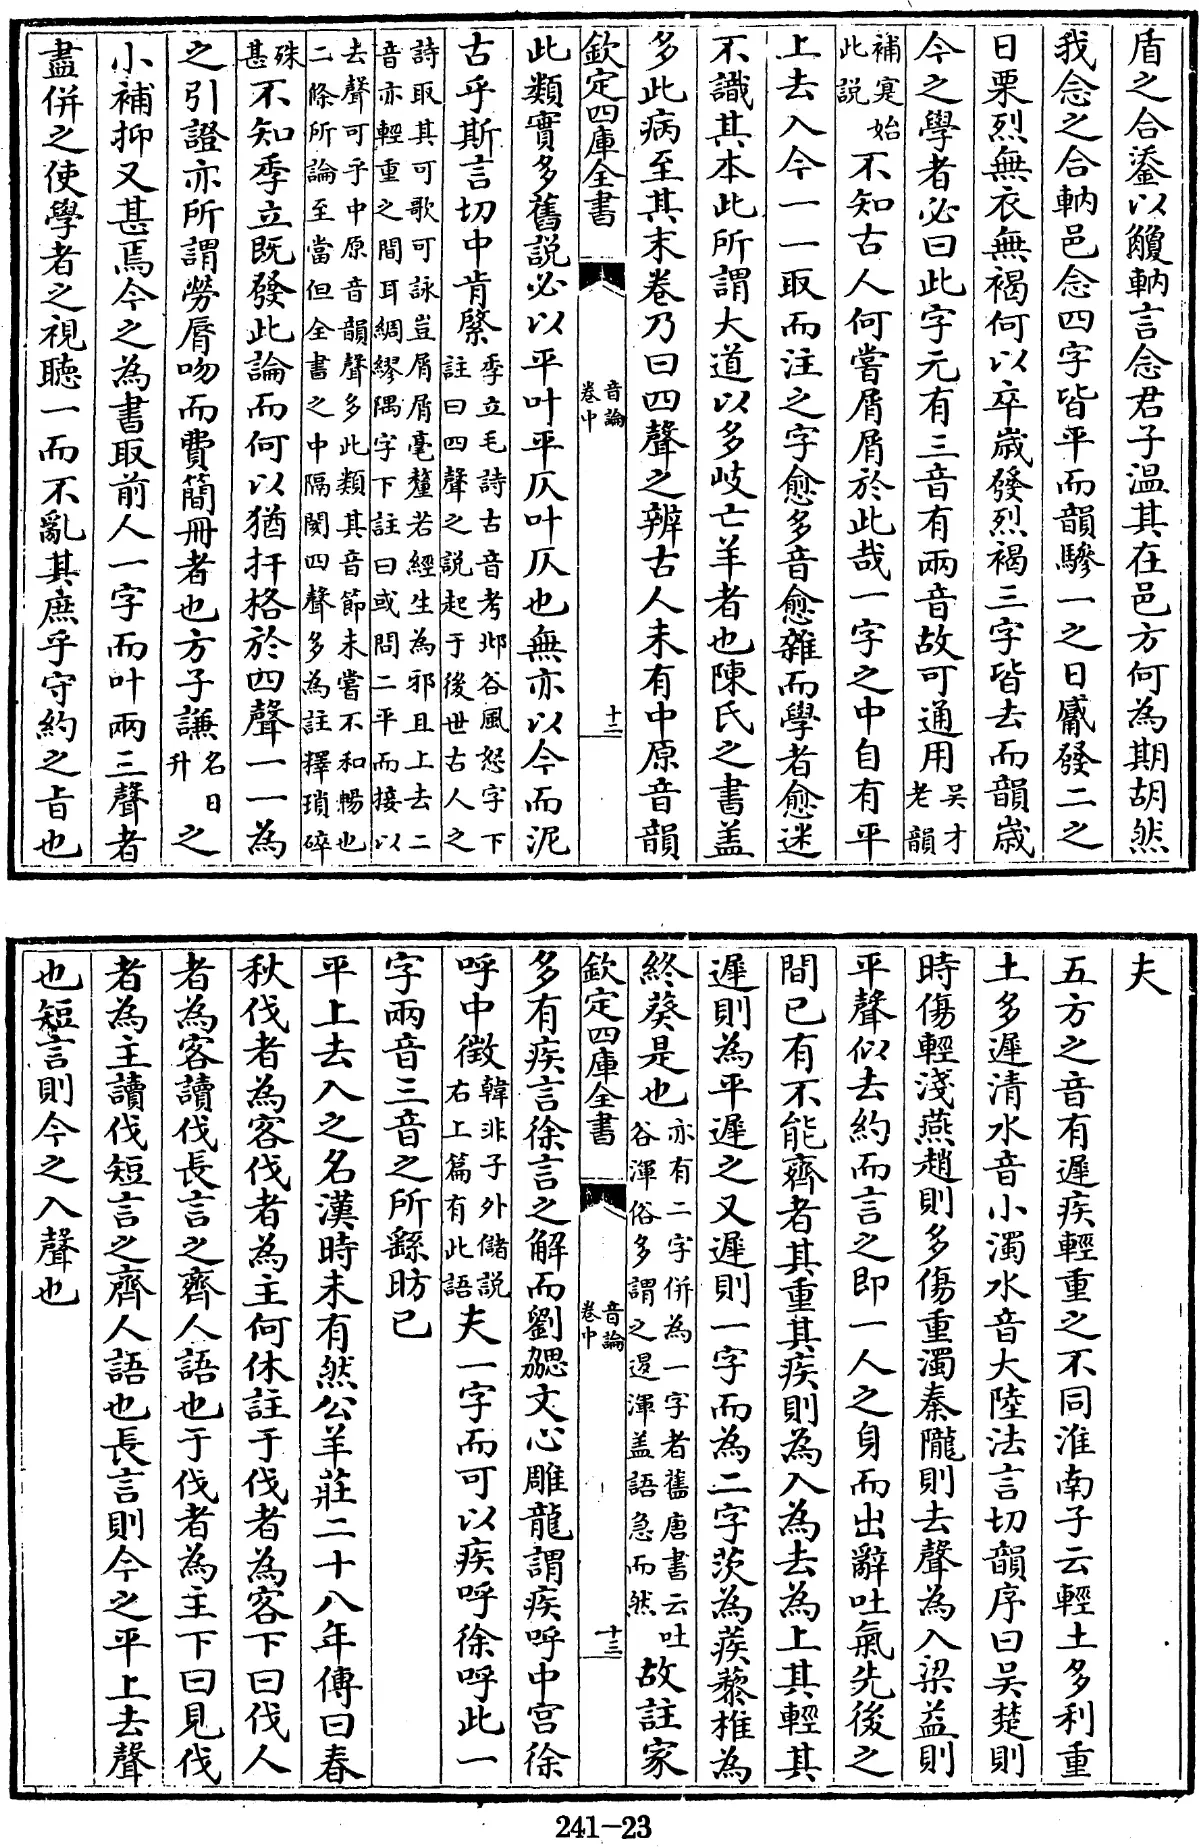 盾之合鋈以觼軜言念君子溫其在邑方何為期胡然
我念之合軜邑念四字皆平而韻驂一之日觱發二之
日栗烈無衣無褐何以卒歲發烈褐三字皆去而韻歲
今之學者必曰此字元有三音有兩音故可通用吳才老韻
補寔始此說不知古人何嘗屑屑於此哉一字之中自有平
上去入今一一取而注之字愈多音愈雜而學者愈迷
不識其本此所謂大道以多岐亡羊者也陳氏之書蓋
多此病至其末卷乃曰四聲之辨古人未有中原音韻
欽定四庫全書 音論卷中 十二
此類實多舊說必以平叶平仄叶仄也無亦以今而泥
古乎斯言切中肯綮季立毛詩古音考邶谷風怒字下註曰四聲之說起于後世古人之
詩取其可歌可詠豈屑屑毫釐若經生為邪且上去二音亦輕重之間耳綢繆隅字下註曰或問二平而接以
去聲可乎中原音韻聲多此類其音節未嘗不和暢也二條所論至當但全書之中隔閡四聲多為註釋瑣碎
殊甚不知季立既發此論而何以猶扞格於四聲一一為
之引證亦所謂勞脣吻而費簡冊者也方子謙名日升之
小補抑又甚焉今之為書取前人一字而叶兩三聲者
盡併之使學者之視聽一而不亂其庶乎守約之旨也
夫
五方之音有遲疾輕重之不同淮南子云輕土多利重
土多遲清水音小濁水音大陸法言切韻序曰吳楚則
時傷輕淺燕趙則多傷重濁秦隴則去聲為入梁益則
平聲似去約而言之即一人之身而出辭吐氣先後之
間已有不能齊者其重其疾則為入為去為上其輕其
遲則為平遲之又遲則一字而為二字茨為蒺藜椎為
終葵是也亦有二字併為一字者舊唐書云吐谷渾俗多謂之退渾蓋語急而然故註家
欽定四庫全書 音論卷中 十三
多有疾言徐言之解而劉勰文心雕龍謂疾呼中宮徐
呼中徵韓非子外儲說右上篇有此語夫一字而可以疾呼徐呼此一
字兩音三音之所繇昉已
平上去入之名漢時未有然公羊莊二十八年傳曰春
秋伐者為客伐者為主何休註于伐者為客下曰伐人
者為客讀伐長言之齊人語也于伐者為主下曰見伐
者為主讀伐短言之齊人語也長言則今之平上去聲
也短言則今之入聲也
241-23